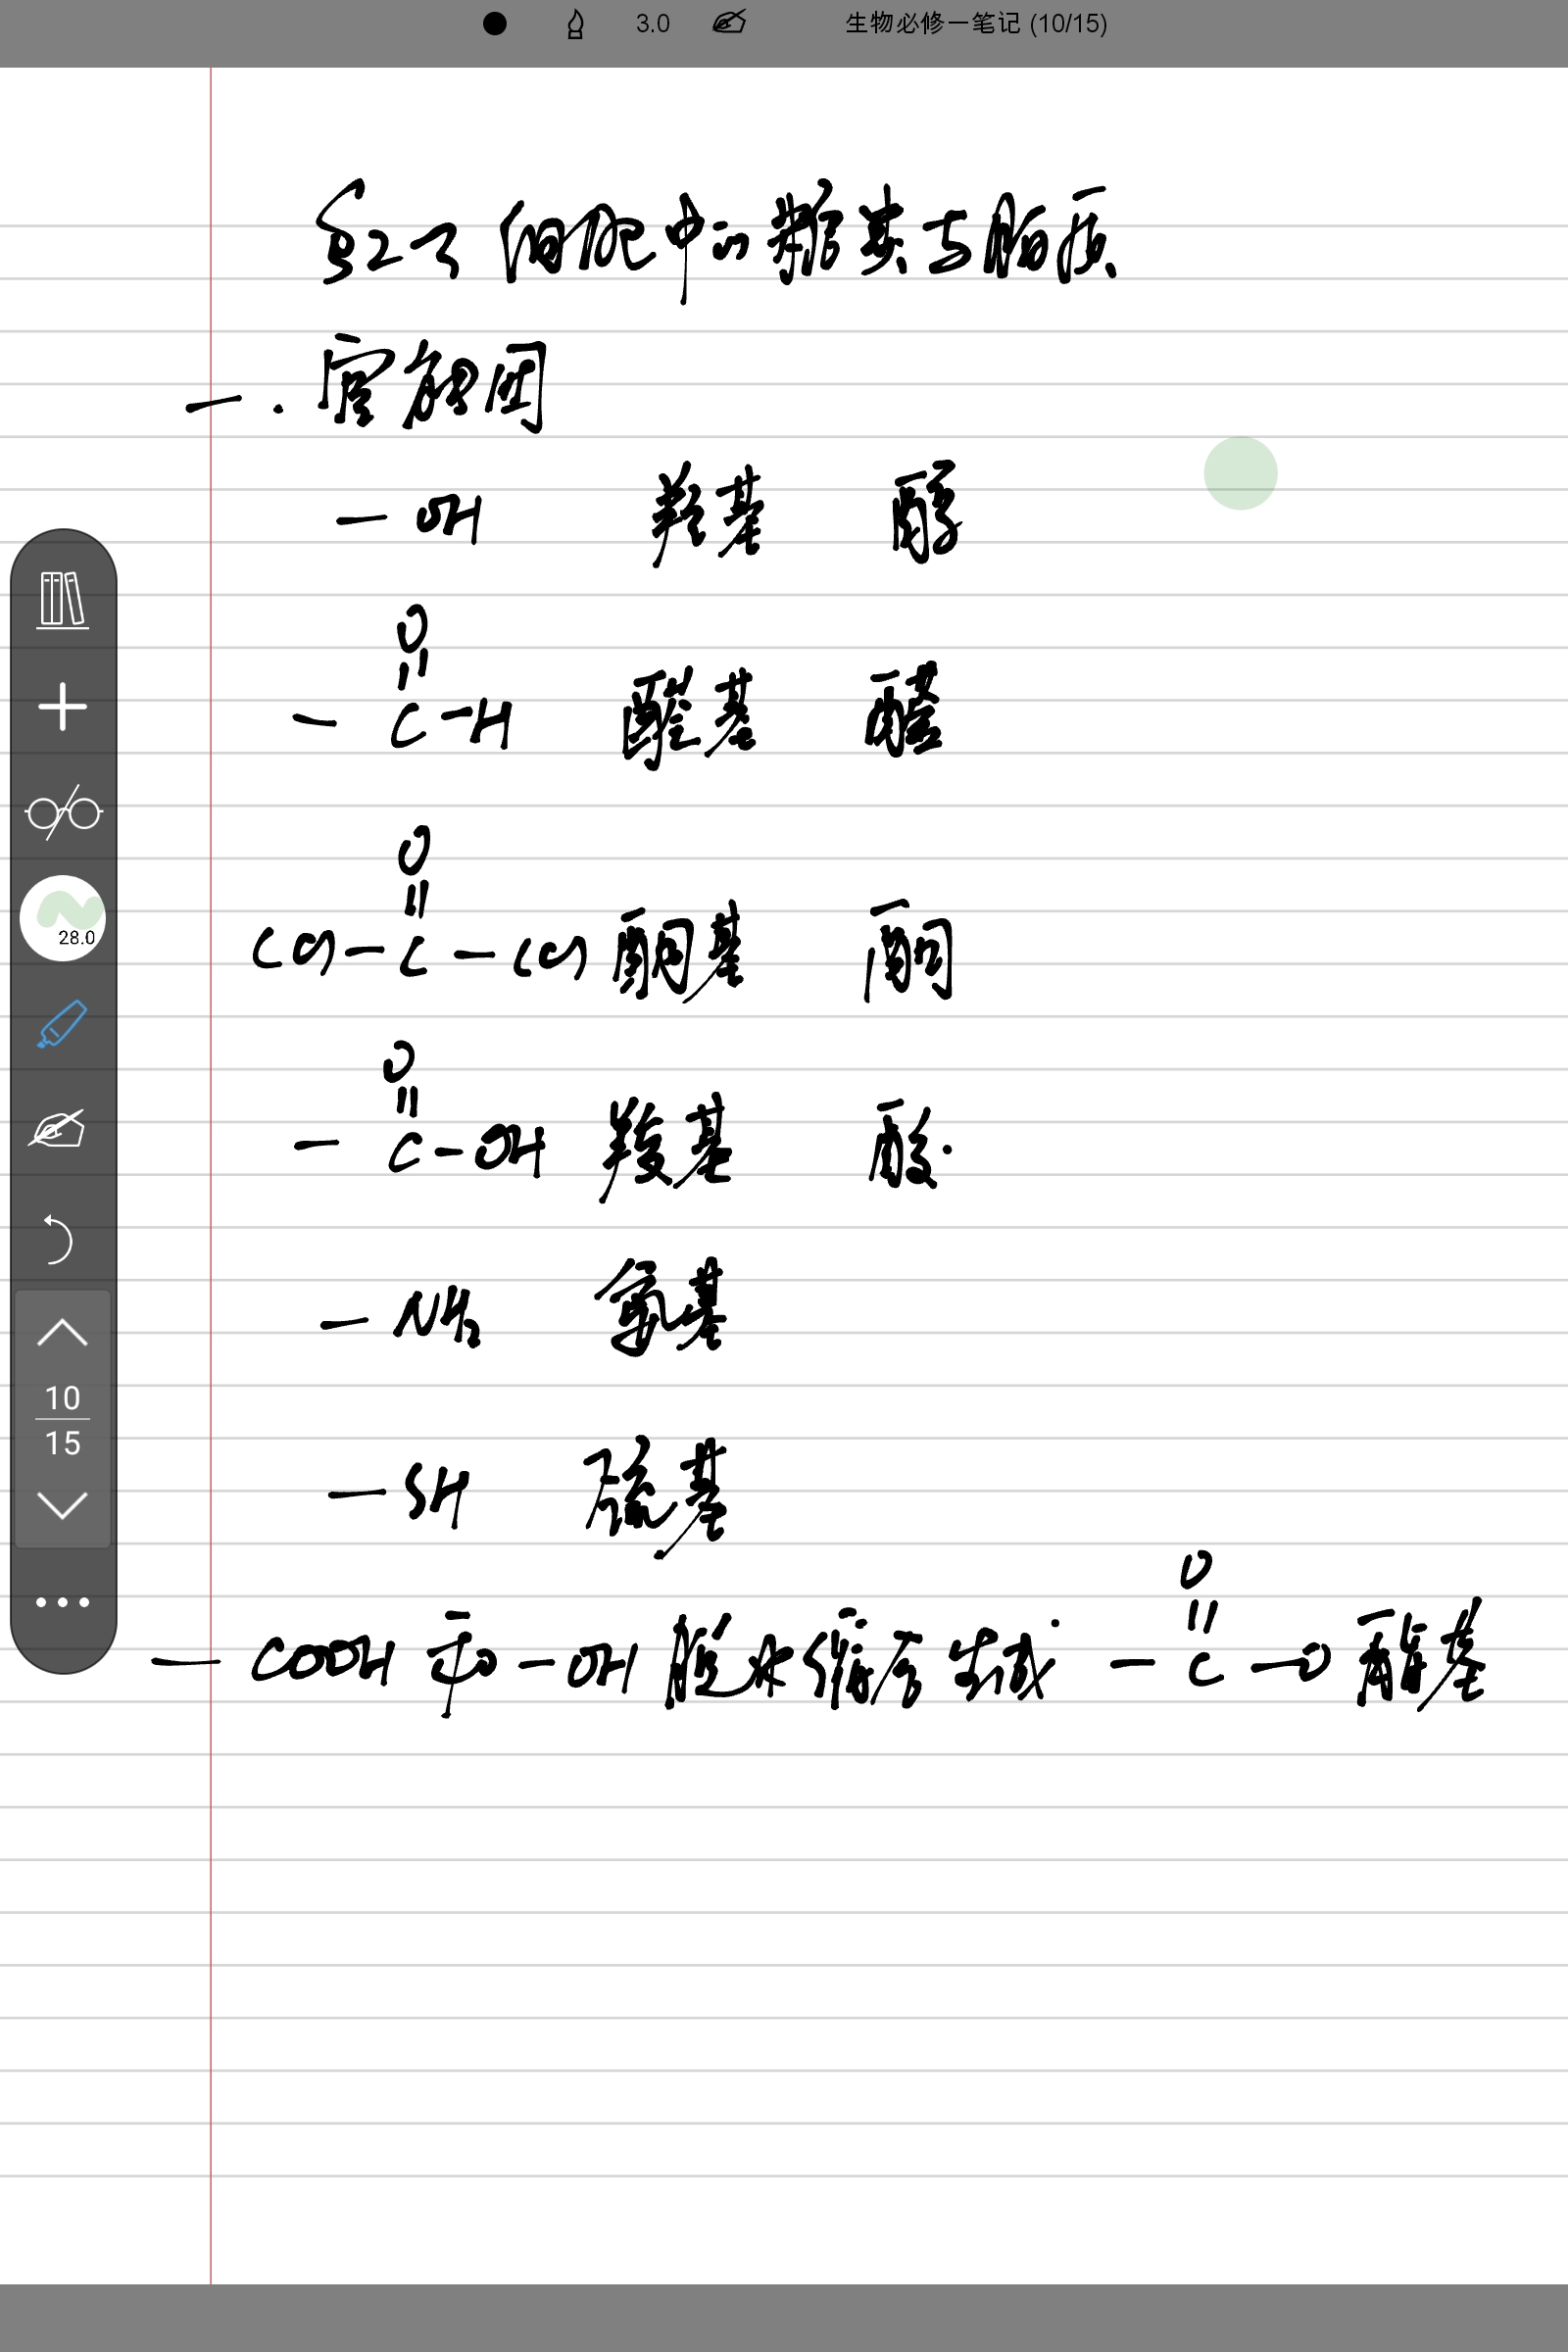 3.0 生物必修一笔记 (10/15)
§2-3 细胞中的糖类与脂质
一. 官能团
—OH 羟基 醇
O
||
—C—H 醛基 醛
O
||
C(n)—C—C(n) 酮基 酮
O
||
—C—OH 羧基 酸
—NH₂ 氨基
—SH 巯基
O
||
—COOH 和 —OH 脱水缩合生成 —C—O 酯基
28.0
10
15